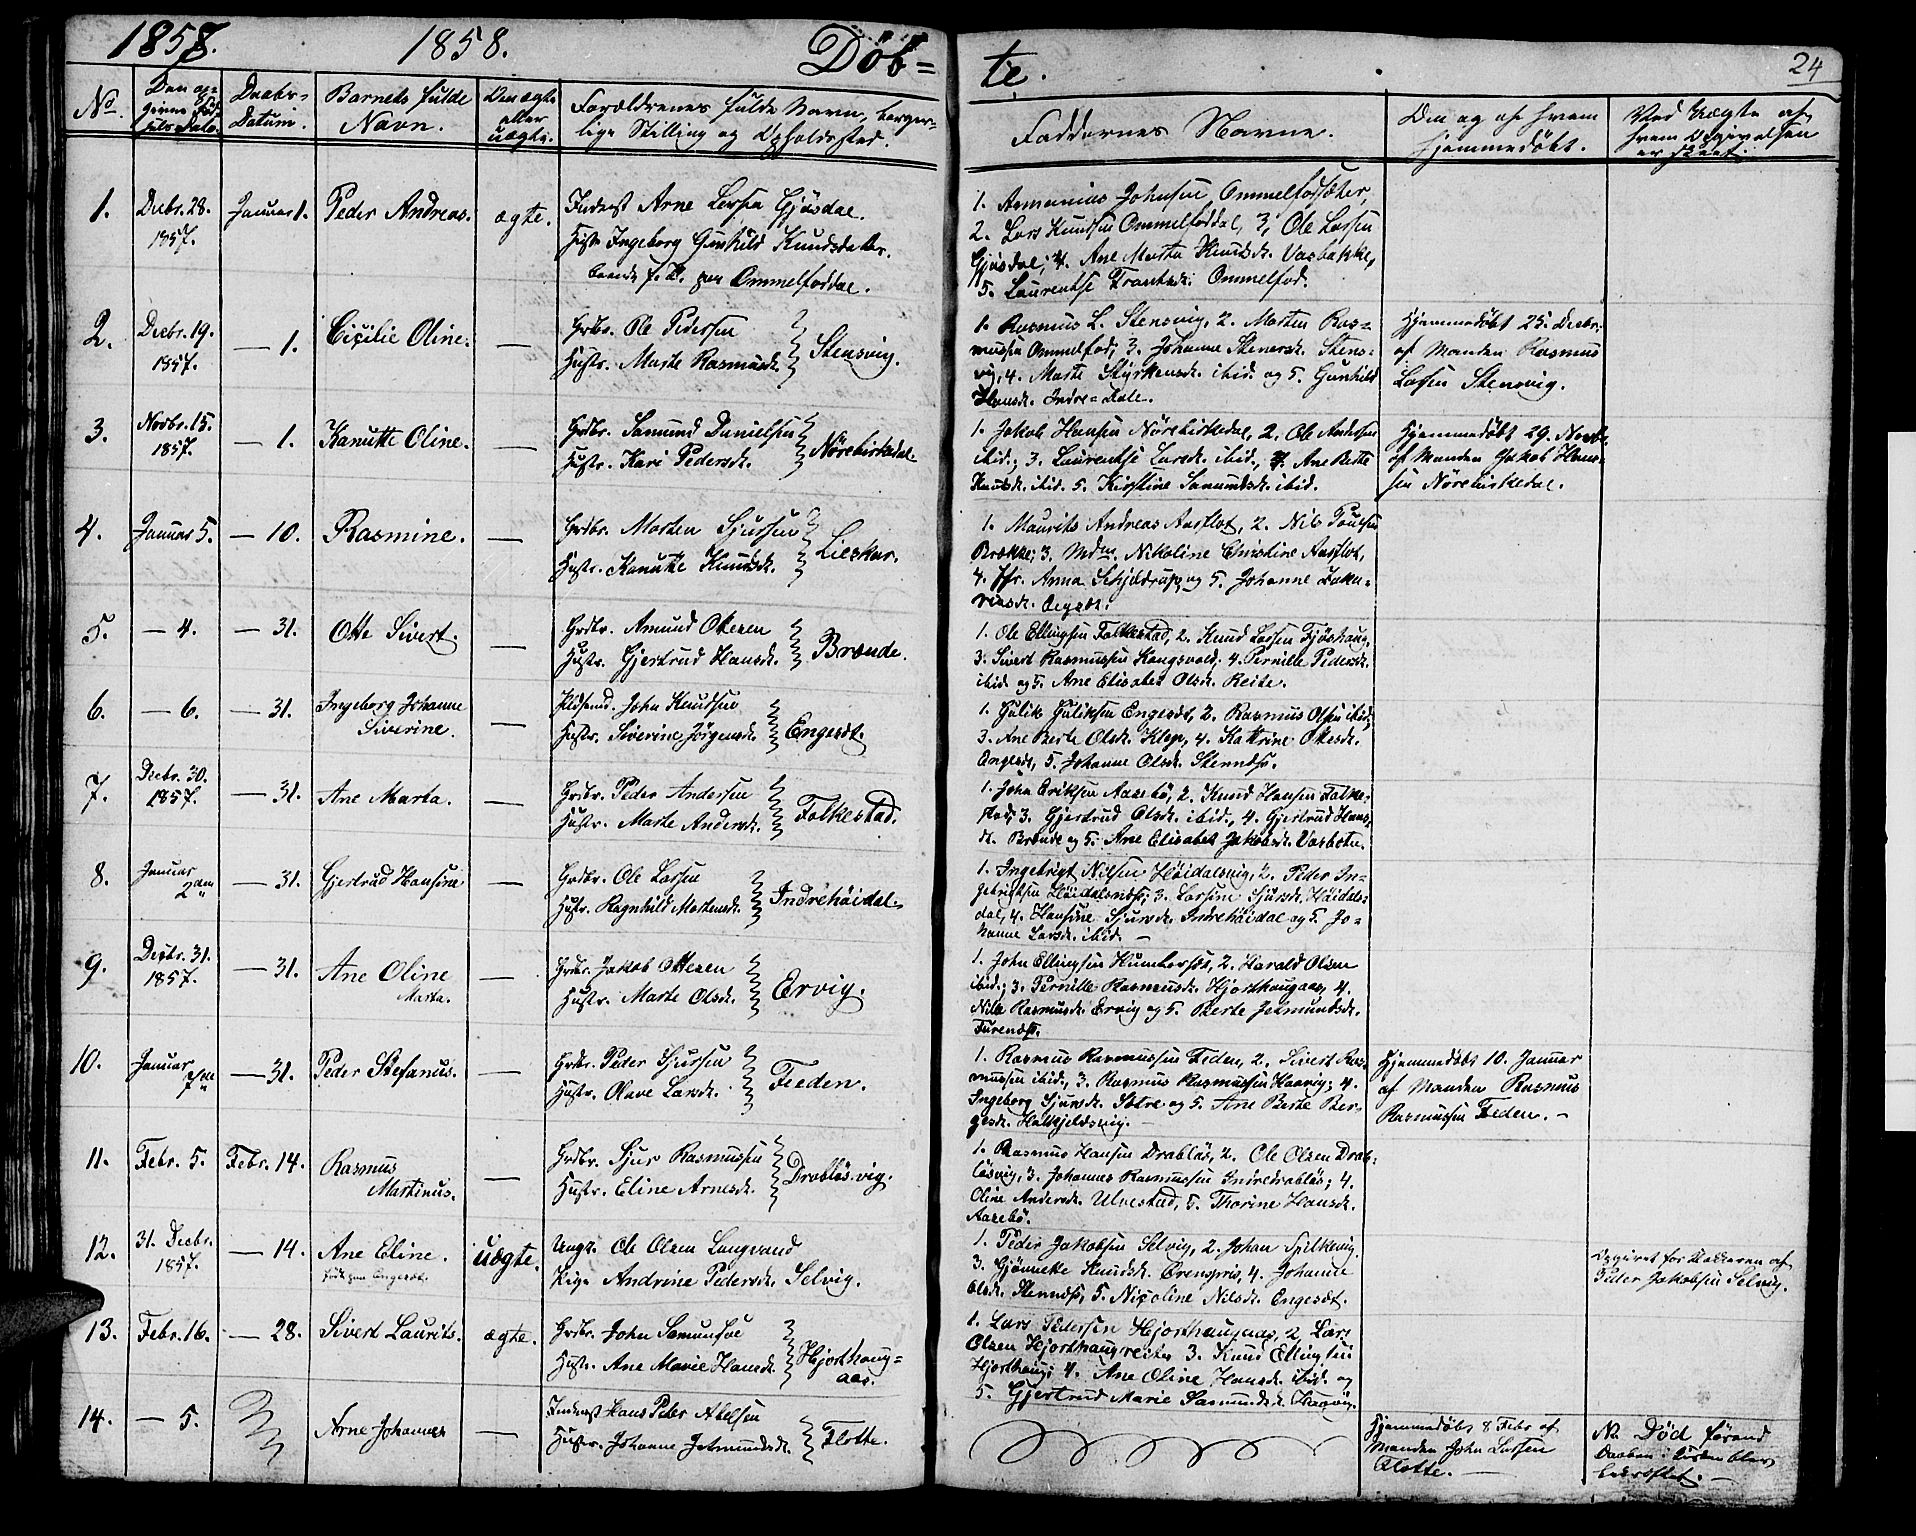 1858. 1858. Døb= te. 24
No. Den op= givne Fød= sels Dato. Daabs= Datum. Barnets fulde Navn. Den ægte eller uægte. Forældrenes fulde Navn, borger= lige Stilling og Opholdssted. Faddernes Navne. Om og af hvem hjemmedøbt. Ved Uægte af hvem Opgivelsen er skeet.
1. Decbr. 28. 1857. Januar 1. Peder Andreas. ægte.
Inderst Arne Larsen Gjøsdal.
Hustr. Ingeborg Gunhild Knudsdatter.
begge f. T. paa Ommelfoddal.
1. Ammanius Johnsen Ommelfodsæter,
2. Lars Knudsen Ommelfoddal, 3, Ole Larsen
Gjøsdal; 4. Ane Marta Knudsd. Vasbakke,
5. Laurentse Frantsd. Ommelfod.
2. Decbr. 19. 1857. — 1. Cicilie Oline. —
Grdbr. Ole Pedersen
Hustr. Marte Rasmusd. Stensvig.
1. Rasmus L. Stensvig, 2. Morten Ras=
mussen Ommelfod, 3. Johanne Stenersd. Stens=
vig, 4. Marte Styrkersd. ibid. og 5. Gunhild
Hansd. Indre=Dale.
Hjemmedøbt 25. Decbr.
af Manden Rasmus
Larsen Stensvig.
3. Novbr. 15. 1857. — 1. Kanutte Oline. —
Grdbr. Samund Danielsen
Hustr. Kari Pedersd. Nørebirkedal.
1. Jakob Hansen Nørebirkedal, 2. Ole Andersen
ibid.; 3. Laurentse Larsd. ibid., 4. Ane Berte
Knudsd. ibid. 5. Kirstine Samundsd. ibid.
Hjemmedøbt 29. Novbr.
af Manden Jakob Han=
sen Nørebirkedal.
4. Januar 5. — 10. Rasmine. —
Grdbr. Morten Sjursen
Hustr. Kanutte Knudsd. Lieskar.
1. Maurits Andreas Aasflot, 2. Nils Poulsen
Brække; 3. Mdm. Nikoline Christine Aasflot,
4. Jfr. Anna Schjeldrup og 5. Johanne Zaka=
riasd.
5. — 4. — 31. Otte Sivert. —
Grdbr. Amund Ottesen
Hustr. Gjertrud Hansd. Brænde.
1. Ole Ellingsen Folkestad, 2. Knud Larsen Fjøshaug,
3. Sivert Rasmussen Kongsvold, 4. Pernille Pedersd.
ibid. og 5. Ane Elisabet Olsd. Reite.
6. — 6. — 31. Ingeborg Johanne
Siverine. —
John Knudsen
Hustr. Siverine Jørgensd. Engesæt.
1. Gulik Guliksen Engesæt, 2. Rasmus Olsen ibid;
3. Ane Berte Olsd. Klep, 4. Kattrine Ottesd.
Engesæt, 5. Johanne Olsd. Stennæs.
7. Decbr. 30. 1857. — 31. Ane Marta. —
Grdbr. Peder Andersen
Hustr. Marte Andersd. Folkestad.
1. John Eriksen Aasebø, 2. Knud Hansen Folke=
stad; 3. Gjertrud Olsd. ibid., 4. Gjertrud Hans=
d. Brænde og 5. Ane Elisabet Jakobsd. Vasbotn.
8. Januar 2den — 31. Gjertrud Hansine —
Grdbr. Ole Larsen
Hustr. Ragnhild Mortensd. Indrehøidal.
1. Ingebrigt Nilsen Høidalsvig, 2. Peder In=
gebrigtsen Høidalsnæs; 3. Larsine Sjursd. Høidals=
dal, 4. Hansine Sjursd. Indrehøidal og 5. Jo=
hanne Larsd. ibid. —
9. Decbr. 31. 1857. — 31. Ane Oline
Marta. —
Grdbr. Jakob Ottesen
Hustr. Marte Olsd. Ervig.
1. John Ellingsen Humborsæt, 2. Harald Olsen
ibid.; 3. Pernille Rasmusd. Hjorthaugaas, 4.
Nille Rasmusd. Ervig og 5. Berte Jetmundsd.
Furenæs.
10. Januar 7de — 31. Peder Stefanus. —
Grdbr. Peder Sjursen
Hustr. Olave Larsd. Feeden.
1. Rasmus Rasmussen Feden, 2. Sivert Ras=
mussen ibid., 3. Rasmus Rasmussen Haavig; 4.
Ingeborg Sjursd. Sætre og 5. Ane Berte Ber=
gesd. Halkjeldsvig. —
Hjemmedøbt 10. Januar
af Manden Rasmus
Rasmussen Feden. —
11. Febr. 5. Febr. 14. Rasmus
Martinus. —
Grdbr. Sjur Rasmussen
Hustr. Eline Arnesd. Drabløsvig.
1. Rasmus Hansen Drabløs, 2. Ole Olsen Drab=
løsvig, 3. Johannes Rasmussen Indredrabløs; 4.
Oline Andersd. Ulvestad, 5. Thorine Hansd.
Aasebø.
12. 31. Decbr. 1857. — 14. Ane Eline.
født paa Engesæt. uægte.
Ungk. Ole Olsen Langvand
Pige Andrine Pedersd. Selvig.
1. Peder Jakobsen Selvig, 2. Johan Spilkevig.
3. Gjønneke Knudsd. Ørenspris, 4. Johanne
Olsd. Stennæs, 5. Nicoline Nilsd. Engesæt.
Opgivet for Klokkeren af
Peder Jakobsen Selvig.
13. Febr. 16. — 28. Sivert Laurits. ægte.
Grdbr. John Samundsen
Hustr. Ane Marie Hansd. Hjorthaug=
aas.
1. Lars Pedersen Hjorthaugaas, 2. Lars
Olsen Hjorthaugreiten 3. Knud Ellingsen
Hjorthaug; 4. Ane Oline Hansd. ibid. og
5. Gjertrud Marie Samundsd. Haavig.
14. — 5. Arne Johannes —
Inderst Hans Peter Abelsen
Hustr. Johanne Jetmundsd. Flotte.
Hjemmedøbt 8 Febr. af
Manden John Larsen
Flotte. —
NB Død førend
Daaben i Kirken blev
bekræftet. —